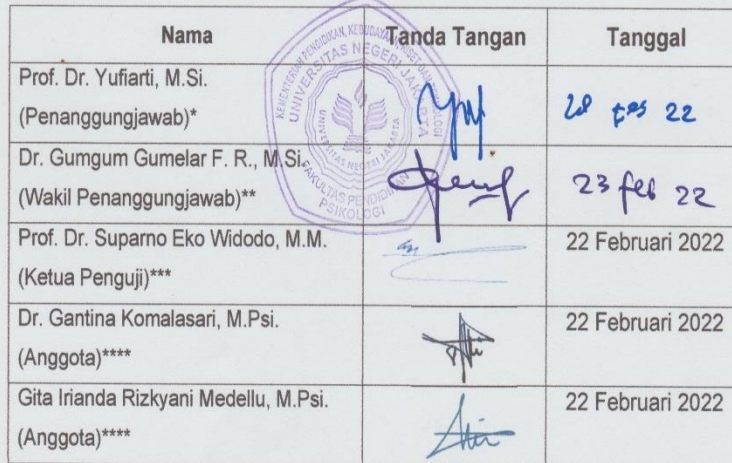 Nama Tanda Tangan Tanggal
Prof. Dr. Yufiarti, M.Si.
(Penanggungjawab)*
22
Dr. Gumgum Gumelar F. R., M.Si.
(Wakil Penanggungjawab)**
23 feb 22
Prof. Dr. Suparno Eko Widodo, M.M.
(Ketua Penguji)***
22 Februari 2022
Dr. Gantina Komalasari, M.Psi.
(Anggota)****
22 Februari 2022
Gita Irianda Rizkyani Medellu, M.Psi.
(Anggota)****
22 Februari 2022
KEMENTERIAN PENDIDIKAN, KEBUDAYAAN, RISET DAN TEKNOLOGI
UNIVERSITAS NEGERI JAKARTA
UNIVERSITAS NEGERI JAKARTA
FAKULTAS PENDIDIKAN
PSIKOLOGI